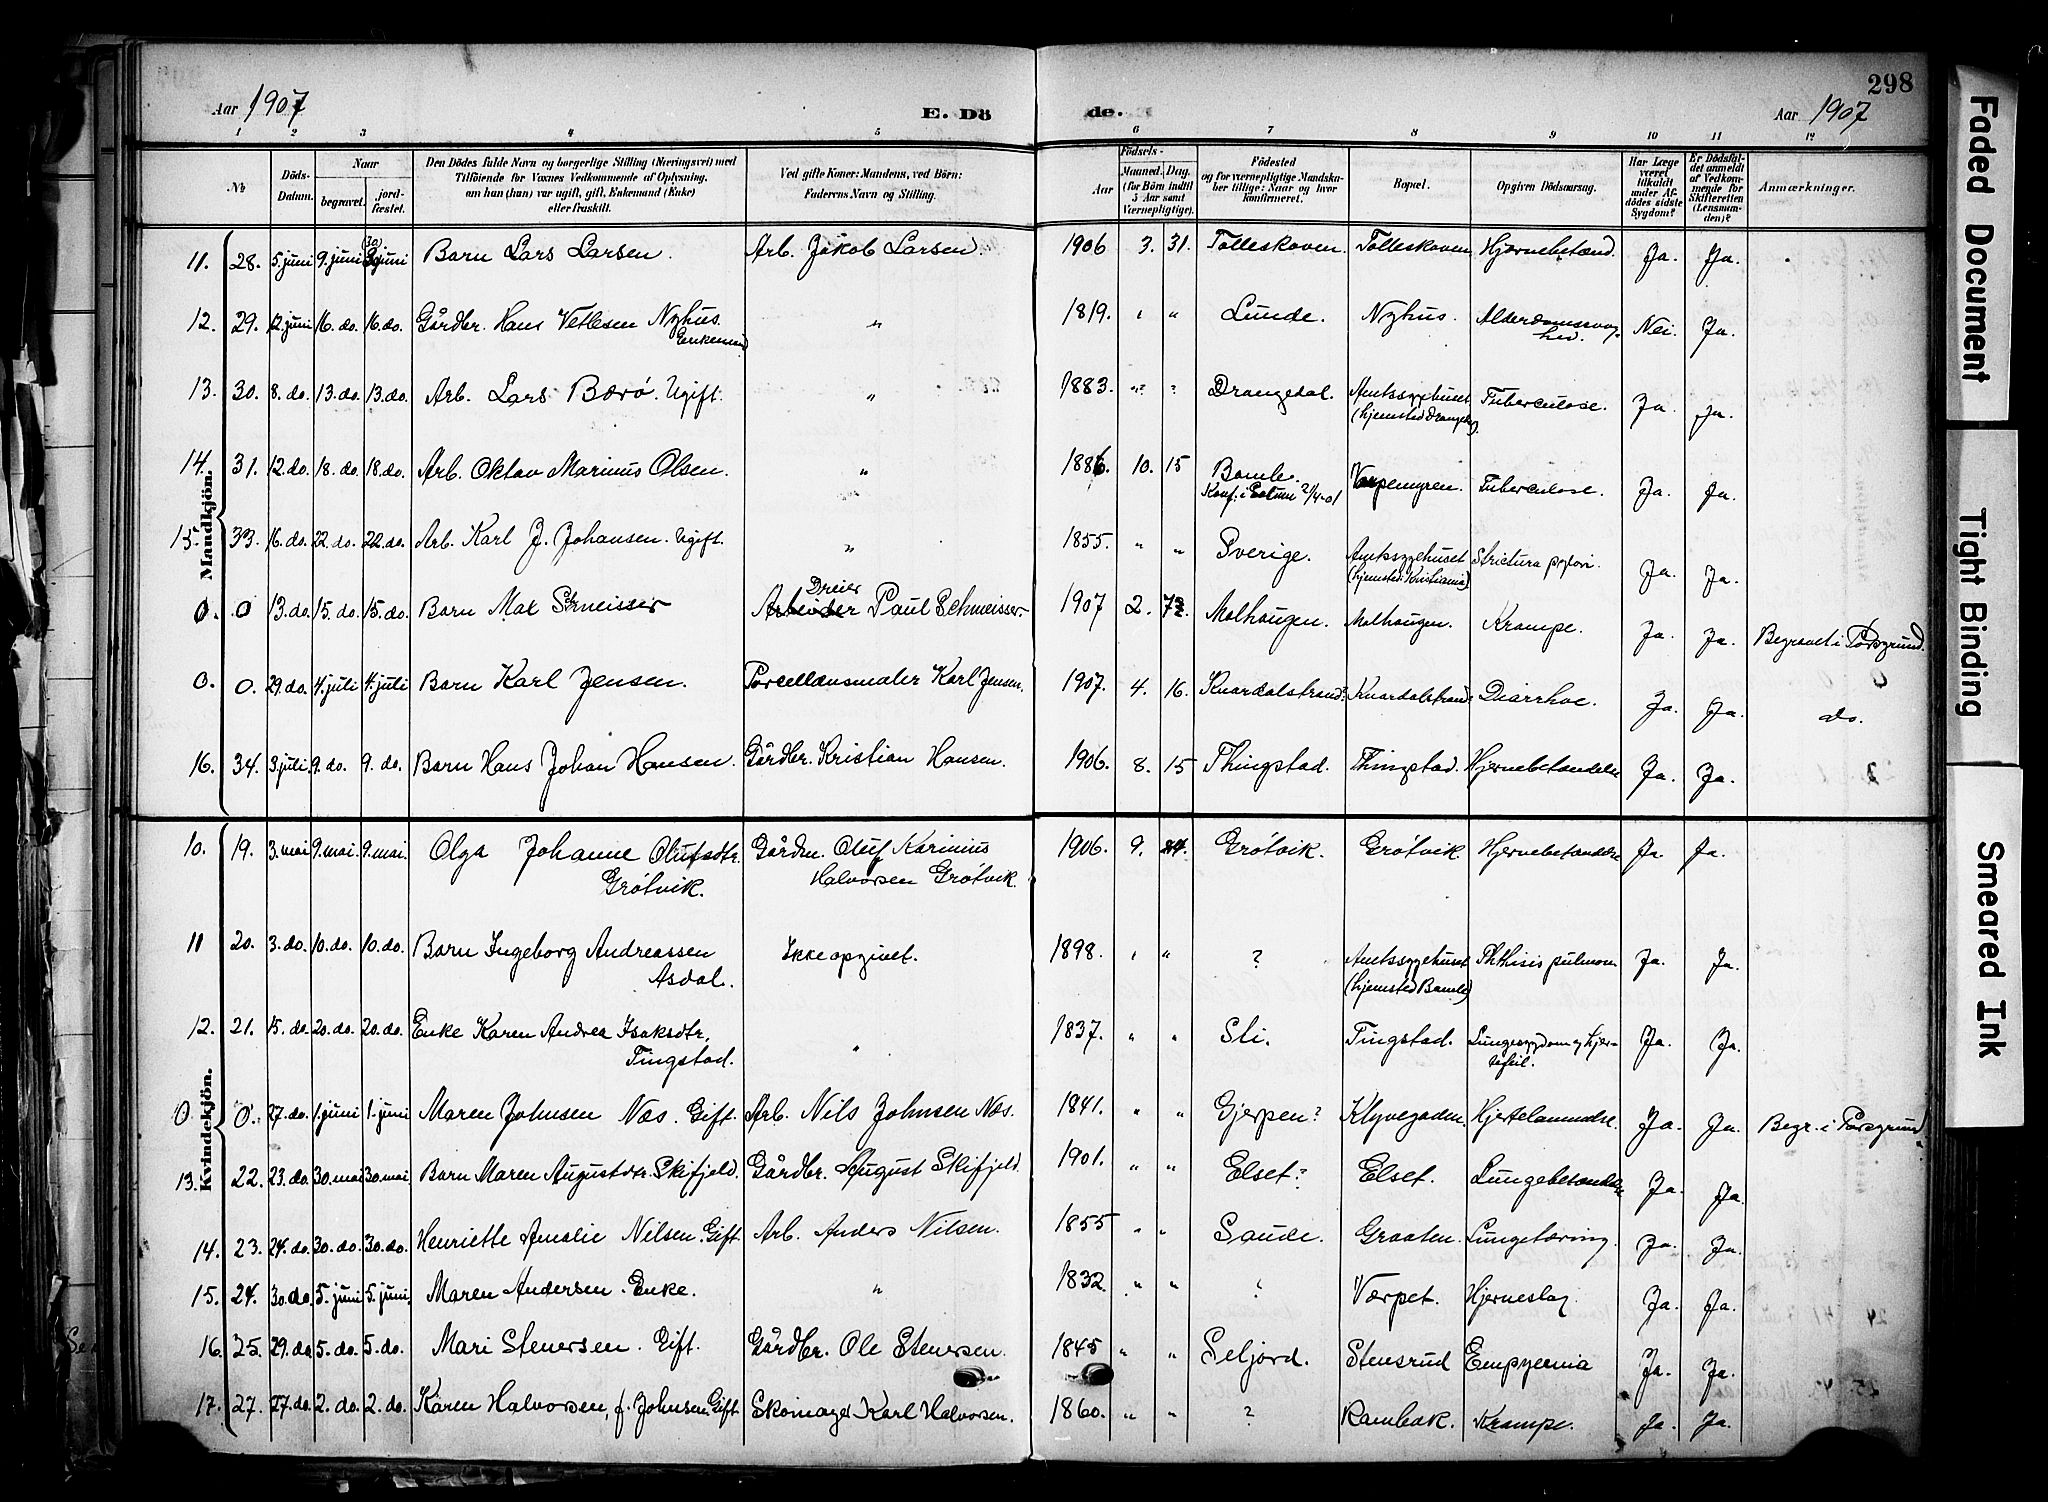 298
Aar 1907 E. Dö de. Aar 1907
1 2 3 4 5 6 7 8 9 10 11 12
No
Döds-Datum.
Naar begravet. jordfæstet.
Den Dödes fulde Navn og borgerlige Stilling (Næringsvei) med Tilföiende for Voxnes Vedkommende af Oplysning, om han (hun) var ugift, gift, Enkemand (Enke) eller fraskilt.
Ved gifte Koner: Mandens, ved Börn: Faderens Navn og Stilling.
Födsels- Aar Maaned. Dag. (for Börn indtil 5 Aar samt Værnepligtige).
Födested og for værnepligtige Mandskaber tillige: Naar og hvor konfirmeret.
Bopæl.
Opgiven Dödsaarsag.
Har Læge været tilkaldt under Afdödes sidste Sygdom?
Er Dödsfaldet anmeldt af Vedkommende for Skifteretten (Lensmanden)?
Anmærkninger.
Mandkjön.
11. 28. 5. juni 9. juni 30 juni Barn Lars Larsen. Arb. Jakob Larsen. 1906 3. 31. Tolleskoven. Tolleskoven Hjernebetænd. Ja. Ja.
12. 29. 12. juni 16. do. 16. do. Gårdbr. Hans Vetlesen Nyhus. Enkemand " 1819. " " Lunde. Nyhus. Alderdomssvaghed. Nei. Ja.
13. 30. 8. do. 13. do. 13. do. Arb. Lars Barø. Ugift. " 1883. "? ? Drangedal. Amtssygehuset (hjemsted Drangedal). Tuberculose. Ja. Ja.
14. 31. 12. do. 18. do. 18. do. Arb. Oktav Marinus Olsen. " 1886 10. 15 Bamle. Konf. i Solum 2/4-01 Vorpemyren. Tuberculose. Ja. Ja.
15. 33. 16. do. 22. do. 22. do. Arb. Karl J. Johansen. Ugift. " 1855. " " Sverige. Amtssygehuset (hjemsted: Kristiania) Strictura pylori. Ja. Ja.
0. 0 13. do. 15. do. 15. do. Barn Max Schmeisser Arbeider Dreier Paul Schmeisser. 1907 2. Molhaugen. Molhaugen. Krampe. Ja. Ja. Begravet i Porsgrund.
0. 0. 29. do. 4. juli 4. juli Barn Karl Jensen. Porcellænsmaler Karl Jensen. 1907. 4. 16. Knardalstrand. Knardalstrand. Diarrhoe. Ja. Ja. do.
16. 34. 3. juli. 9. do. 9. do. Barn Hans Johan Hansen. Gårdbr. Kristian Hansen. 1906. 8. 15 Thingstad. Thingstad. Hjernebetændelse Ja. Ja.
Kvindekjön.
10. 19. 3. mai 9. mai. 9. mai. Olga Johanne Olufsdtr. Grøtvik. Gårdm. Oluf Karinius Halvorsen Grøtvik. 1906. 9. 24. Grøtvik. Grøtvik. Hjernebetændelse Ja Ja.
11 20. 3. do. 10. do. 10. do. Barn Ingeborg Andreassen Asdal. Ikke opgivet. 1898. " " ? Amtssygehuset (hjemsted Bamle) Phthisis pulmon. Ja. Ja.
12. 21. 15. do. 20. do. 20. do. Enke Karen Andrea Isaksdtr. Tingstad. " 1837. " " Sli. Tingstad. Lungesygdom og hjertefeil. Ja. Ja.
0 0. 27. do. 1. juni 1. juni Maren Johnsen Næs. Gift. Arb. Nils Johnsen Næs. 1841. " " Gjerpen? Klyvegaden. Hjertelammelse. Ja. Ja. Begr. i Porsgrund.
13. 22. 23. do. 30. mai 30. mai. Barn Maren Augustdtr. Skifjeld. Gårdbr. August Skifjeld. 1901. " " Elset? Elset. Lungebetændelse Ja. Ja.
14. 23. 24. do. 30. do. 30. do. Henriette Amalie Nilsen. Gift. Arb. Anders Nilsen. 1855 " " Saude. Graaten. Lungetæring. Ja. Ja.
15. 24. 30. do. 5. juni 5. juni. Maren Andersen. Enke. " 1832 " " ? Værpet. Hjerneslag. Ja. Ja.
16. 25. 29. do. 5. do. 5. do. Mari Stenersen. Gift. Gårdbr. Ole Stenersen. 1845 " " Seljord. Stensrud Empyemia Ja. Ja.
17. 27. 27. do. 2. do. 2. do. Karen Halvorsen, f. Johnsen. Gift. Skomager Karl Halvorsen. 1860. " " ? Rambæk. Krampe. Ja. Ja.
Faded Document
Tight Binding
Smeared Ink